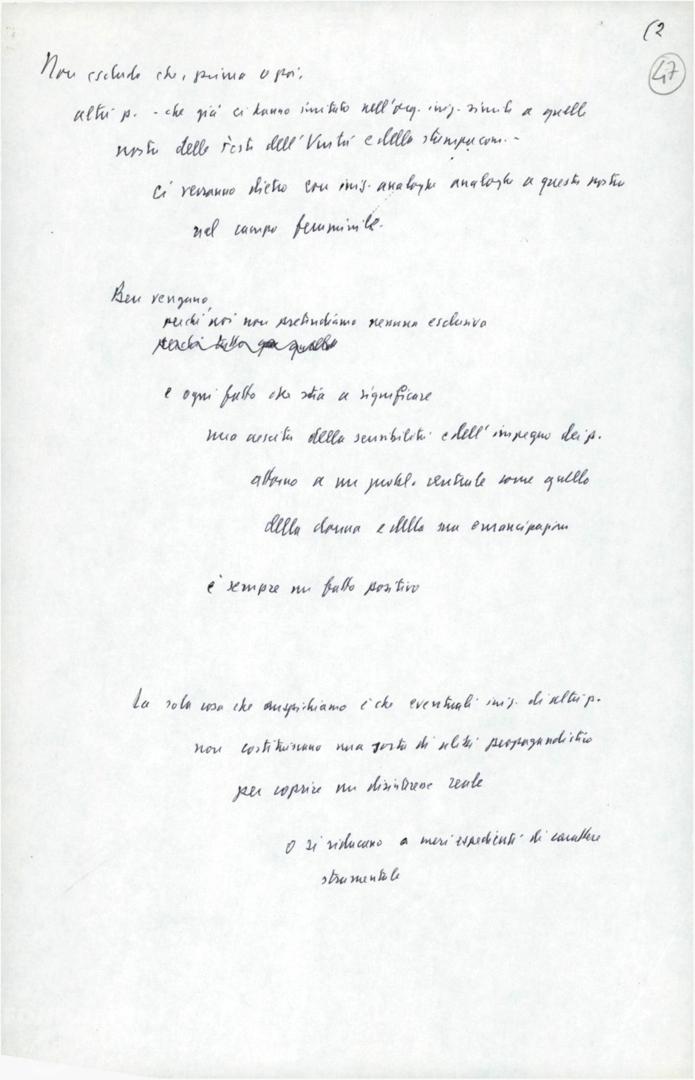 (2
47
Non escludo che, prima o poi,
altri p. - che già ci hanno imitato nell'org. iniz. simili a quelle
nostre delle feste dell'Unità e della stampa com. -
ci verranno dietro con iniz. analoghe analoghe a questa nostra
nel campo femminile.
Ben vengano,
perché noi non pretendiamo nessuna esclusiva
e ogni fatto che stia a significare
una crescita della sensibilità e dell'impegno dei p.
attorno a un probl. centrale come quello
della donna e della sua emancipazione
è sempre un fatto positivo
La sola cosa che auspichiamo è che eventuali iniz. di altri p.
non costituiscano una sorta di alibi propagandistico
per coprire un disinteresse reale
o si riducano a meri espedienti di carattere
strumentale